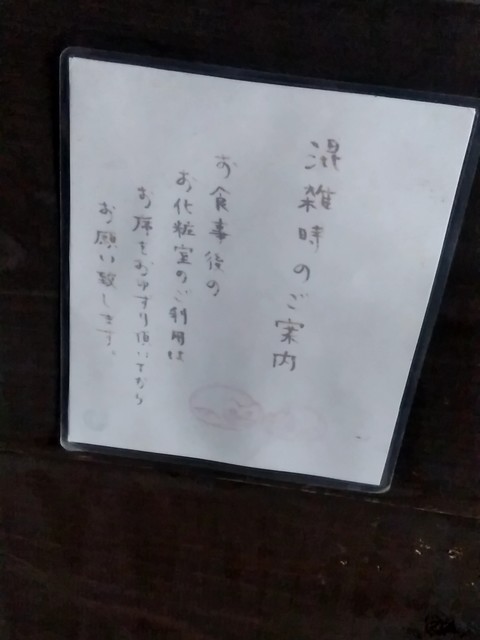 混雑時のご案内
お食事後の
お化粧室のご利用は
お席をおゆずり頂いてから
お願い致します。